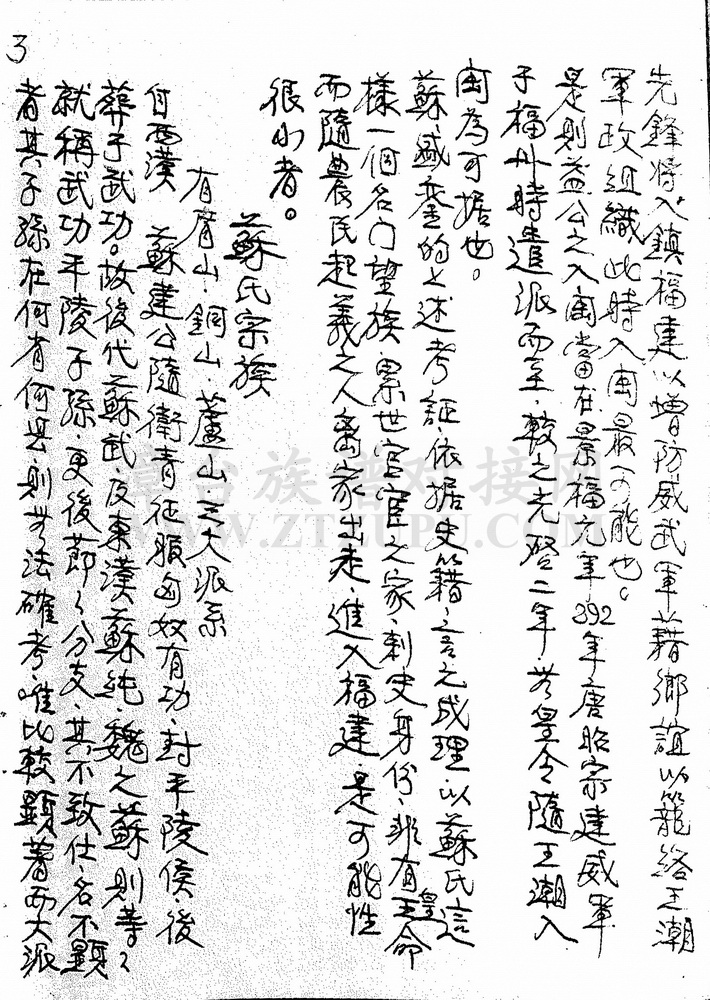 先鋒將入鎮福建以增防威武軍藉鄉誼以籠絡王潮
軍政組織此時入閩最可能也。
是則益公之入閩當在景福元年392年唐昭宗建威軍
于福州時遣派而至、較之光啓二年、另皇令隨王潮入
閩為可據也。
蘇、盛奎的上述考証、依据史籍、言之成理、以蘇氏這
樣一個名门望族、累世官宦之家、刺史身份、非有王皇命
而隨農民起義之人离家出走、進入福建、是可能性
很小者。
蘇氏宗族
有眉山、銅山、蘆山三大派系
自西漢 蘇建公隨衛青征服匈奴有功、封平陵侯、後
葬于武功。故後代蘇武、及東漢蘇純、魏之蘇則等々
就稱武功平陵子孫、更後節々分支、其不致仕、名不顯
者其子孫在何省何县、則無法確考、唯比較顯著西大派
3
漳台族譜对接网
WWW.ZTZUPU.COM